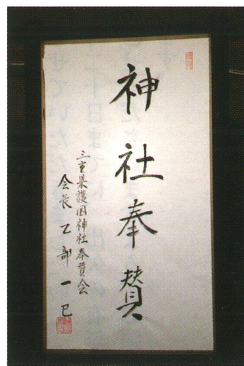 神社奉賛
三重県護国神社奉賛会
会長 乙部一巳